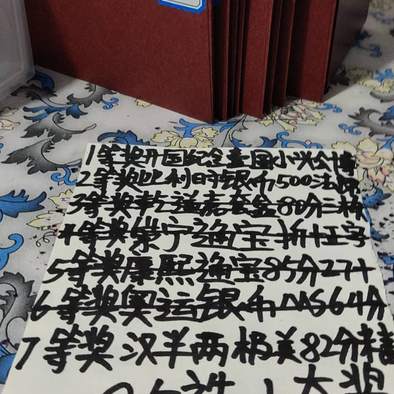 1等奖开国纪念壹圆小兴合博
2等奖比利时银币500法郎
3等奖乾道嘉套盒80分二枚
4等奖崇宁通宝折十正字
5等奖康熙通宝85分27+
6等奖奥运银币NAS64分
7等奖汉半两极美82分精
大奖